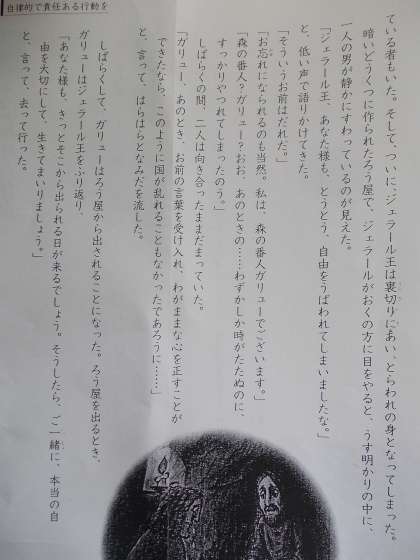 自律的で責任ある行動を
ている者もいた。そして、ついに、ジェラール王は裏切りにあい、とらわれの身となってしまった。
暗いどうくつに作られたろう屋で、ジェラールがおくの方に目をやると、うす明かりの中に、
一人の男が静かにすわっているのが見えた。
「ジェラール王、あなた様も、とうとう、自由をうばわれてしまいましたな。」
と、低い声で語りかけてきた。
「そういうお前はだれだ。」
「お忘れになられるのも当然。私は、森の番人ガリューでございます。」
「森の番人？ガリュー？おお、あのときの……わずかしか時がたたぬのに、
すっかりやつれてしまったのう。」
しばらくの間、二人は向き合ったままだまっていた。
「ガリュー、あのとき、お前の言葉を受け入れ、わがままな心を正すことが
できたなら、このように国が乱れることもなかったであろうに……」
と、言って、はらはらとなみだを流した。
しばらくして、ガリューはろう屋から出されることになった。ろう屋を出るとき、
ガリューはジェラール王をふり返り、
「あなた様も、きっとそこから出られる日が来るでしょう。そうしたら、ご一緒に、本当の自
由を大切にして、生きてまいりましょう。」
と、言って、去って行った。